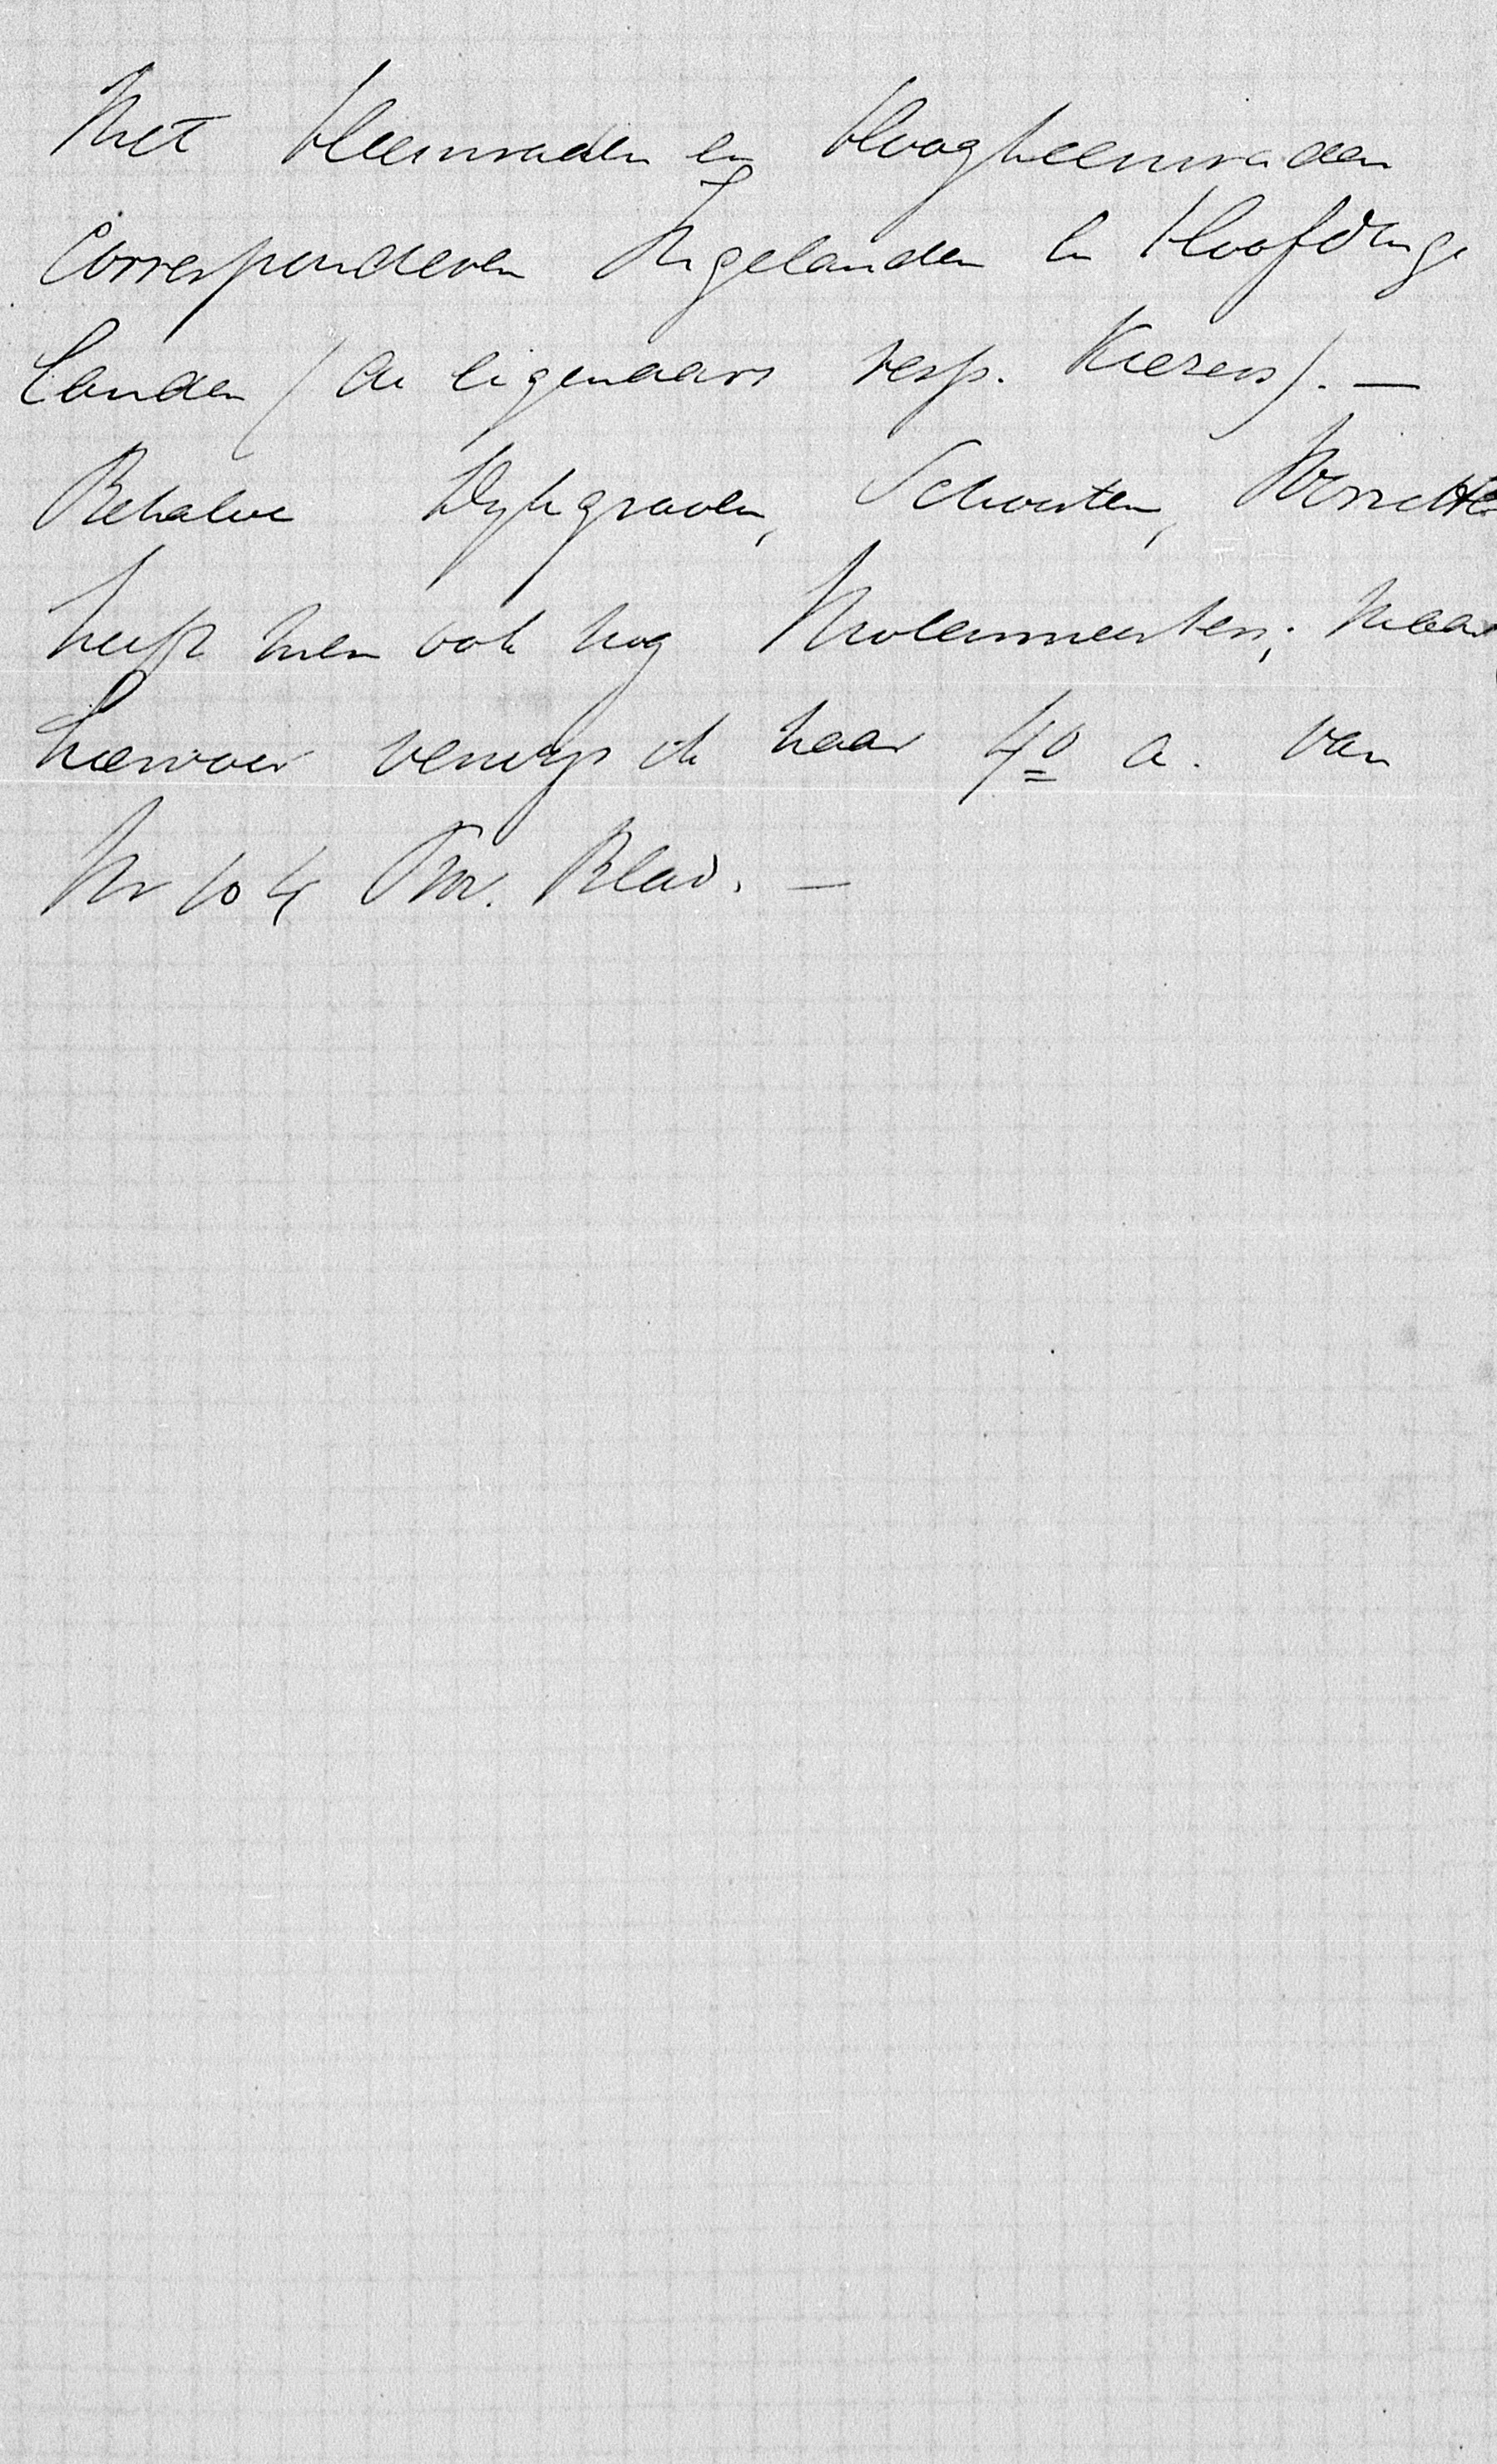 Met Heemraden en Hoogheemraden
Corresponderen Ingelanden en Hoofdinge
landen (de eigenaars resp. Kiezers). —
Behalve Dijkgraven, Schouten, Voorzitters
heeft men ook nog Molenmeesters; maar
hiervoor verwijs ik naar 4º a. van
Nr 104 Prov. Blad. —